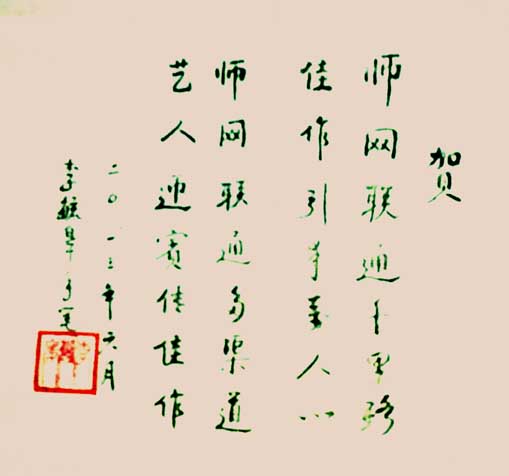 贺
师网联通千里路
佳作引萬人心
师网联通多渠道
艺人迎宾传佳作
二0一三年六月
李